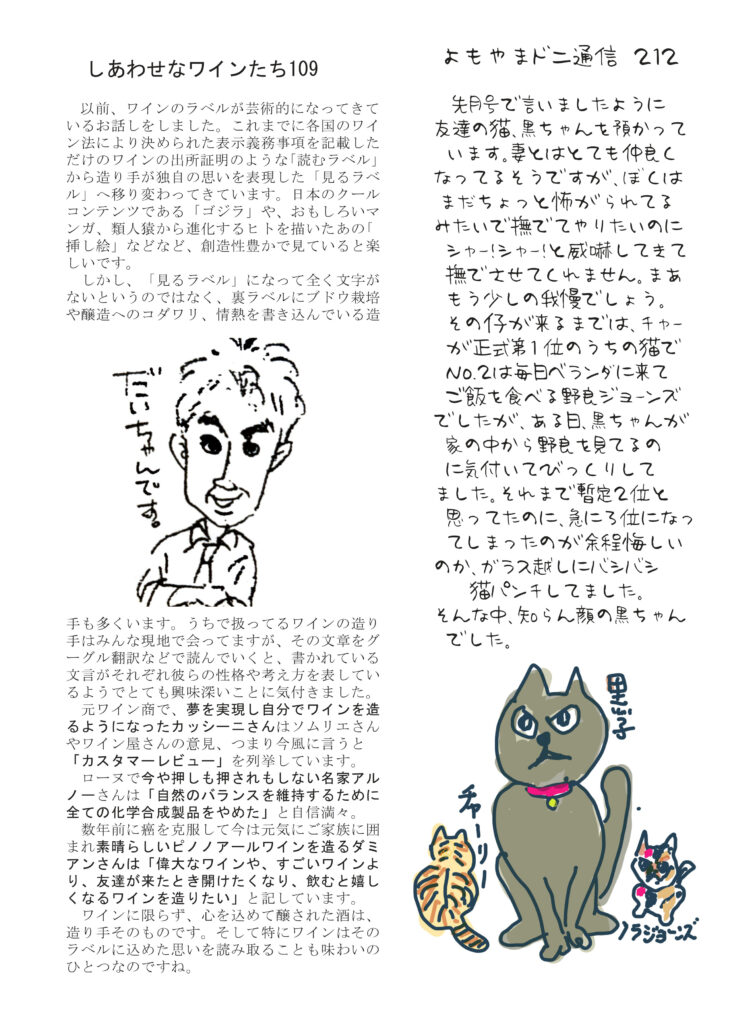 しあわせなワインたち109
以前、ワインのラベルが芸術的になってきて
いるお話しをしました。これまでに各国のワイ
ン法により決められた表示義務事項を記載した
だけのワインの出所証明のような「読むラベル」
から造り手が独自の思いを表現した「見るラベ
ル」へ移り変わってきています。日本のクール
コンテンツである「ゴジラ」や、おもしろいマ
ンガ、類人猿から進化するヒトを描いたあの「
挿し絵」などなど、創造性豊かで見ていると楽
しいです。
しかし、「見るラベル」になって全く文字が
ないというのではなく、裏ラベルにブドウ栽培
や醸造へのコダワリ、情熱を書き込んでいる造
だいちゃんです。
手も多くいます。うちで扱ってるワインの造り
手はみんな現地で会ってますが、その文章をグ
ーグル翻訳などで読んでいくと、書かれている
文言がそれぞれ彼らの性格や考え方を表してい
るようでとても興味深いことに気付きました。
元ワイン商で、夢を実現し自分でワインを造
るようになったカッシーニさんはソムリエさん
やワイン屋さんの意見、つまり今風に言うと
「カスタマーレビュー」を列挙しています。
ローヌで今や押しも押されもしない名家アル
ノーさんは「自然のバランスを維持するために
全ての化学合成製品をやめた」と自信満々。
数年前に癌を克服して今は元気にご家族に囲
まれ素晴らしいピノノアールワインを造るダミ
アンさんは「偉大なワインや、すごいワインよ
り、友達が来たとき開けたくなり、飲むと嬉し
くなるワインを造りたい」と記しています。
ワインに限らず、心を込めて醸された酒は、
造り手そのものです。そして特にワインはその
ラベルに込めた思いを読み取ることも味わいの
ひとつなのですね。
よもやまドニ通信 212
先月号で言いましたように
友達の猫、黒ちゃんを預かって
います。妻とはとても仲良く
なってるそうですが、ぼくは
まだちょっと怖がられてる
みたいで撫でてやりたいのに
シャー!シャー!と威嚇してきて
撫でさせてくれません。まあ
もう少しの我慢でしょう。
その仔が来るまでは、チャー
が正式第1位のうちの猫で
No.2は毎日ベランダに来て
ご飯を食べる野良ジョーンズ
でしたが、ある日、黒ちゃんが
家の中から野良を見てるの
に気付いてびっくりして
ました。それまで暫定2位と
思ってたのに、急に3位になっ
てしまったのが余程悔しい
のか、ガラス越しにバシバシ
猫パンチしてました。
そんな中、知らん顔の黒ちゃん
でした。
黒子
チャーリー
ノラジョーンズ